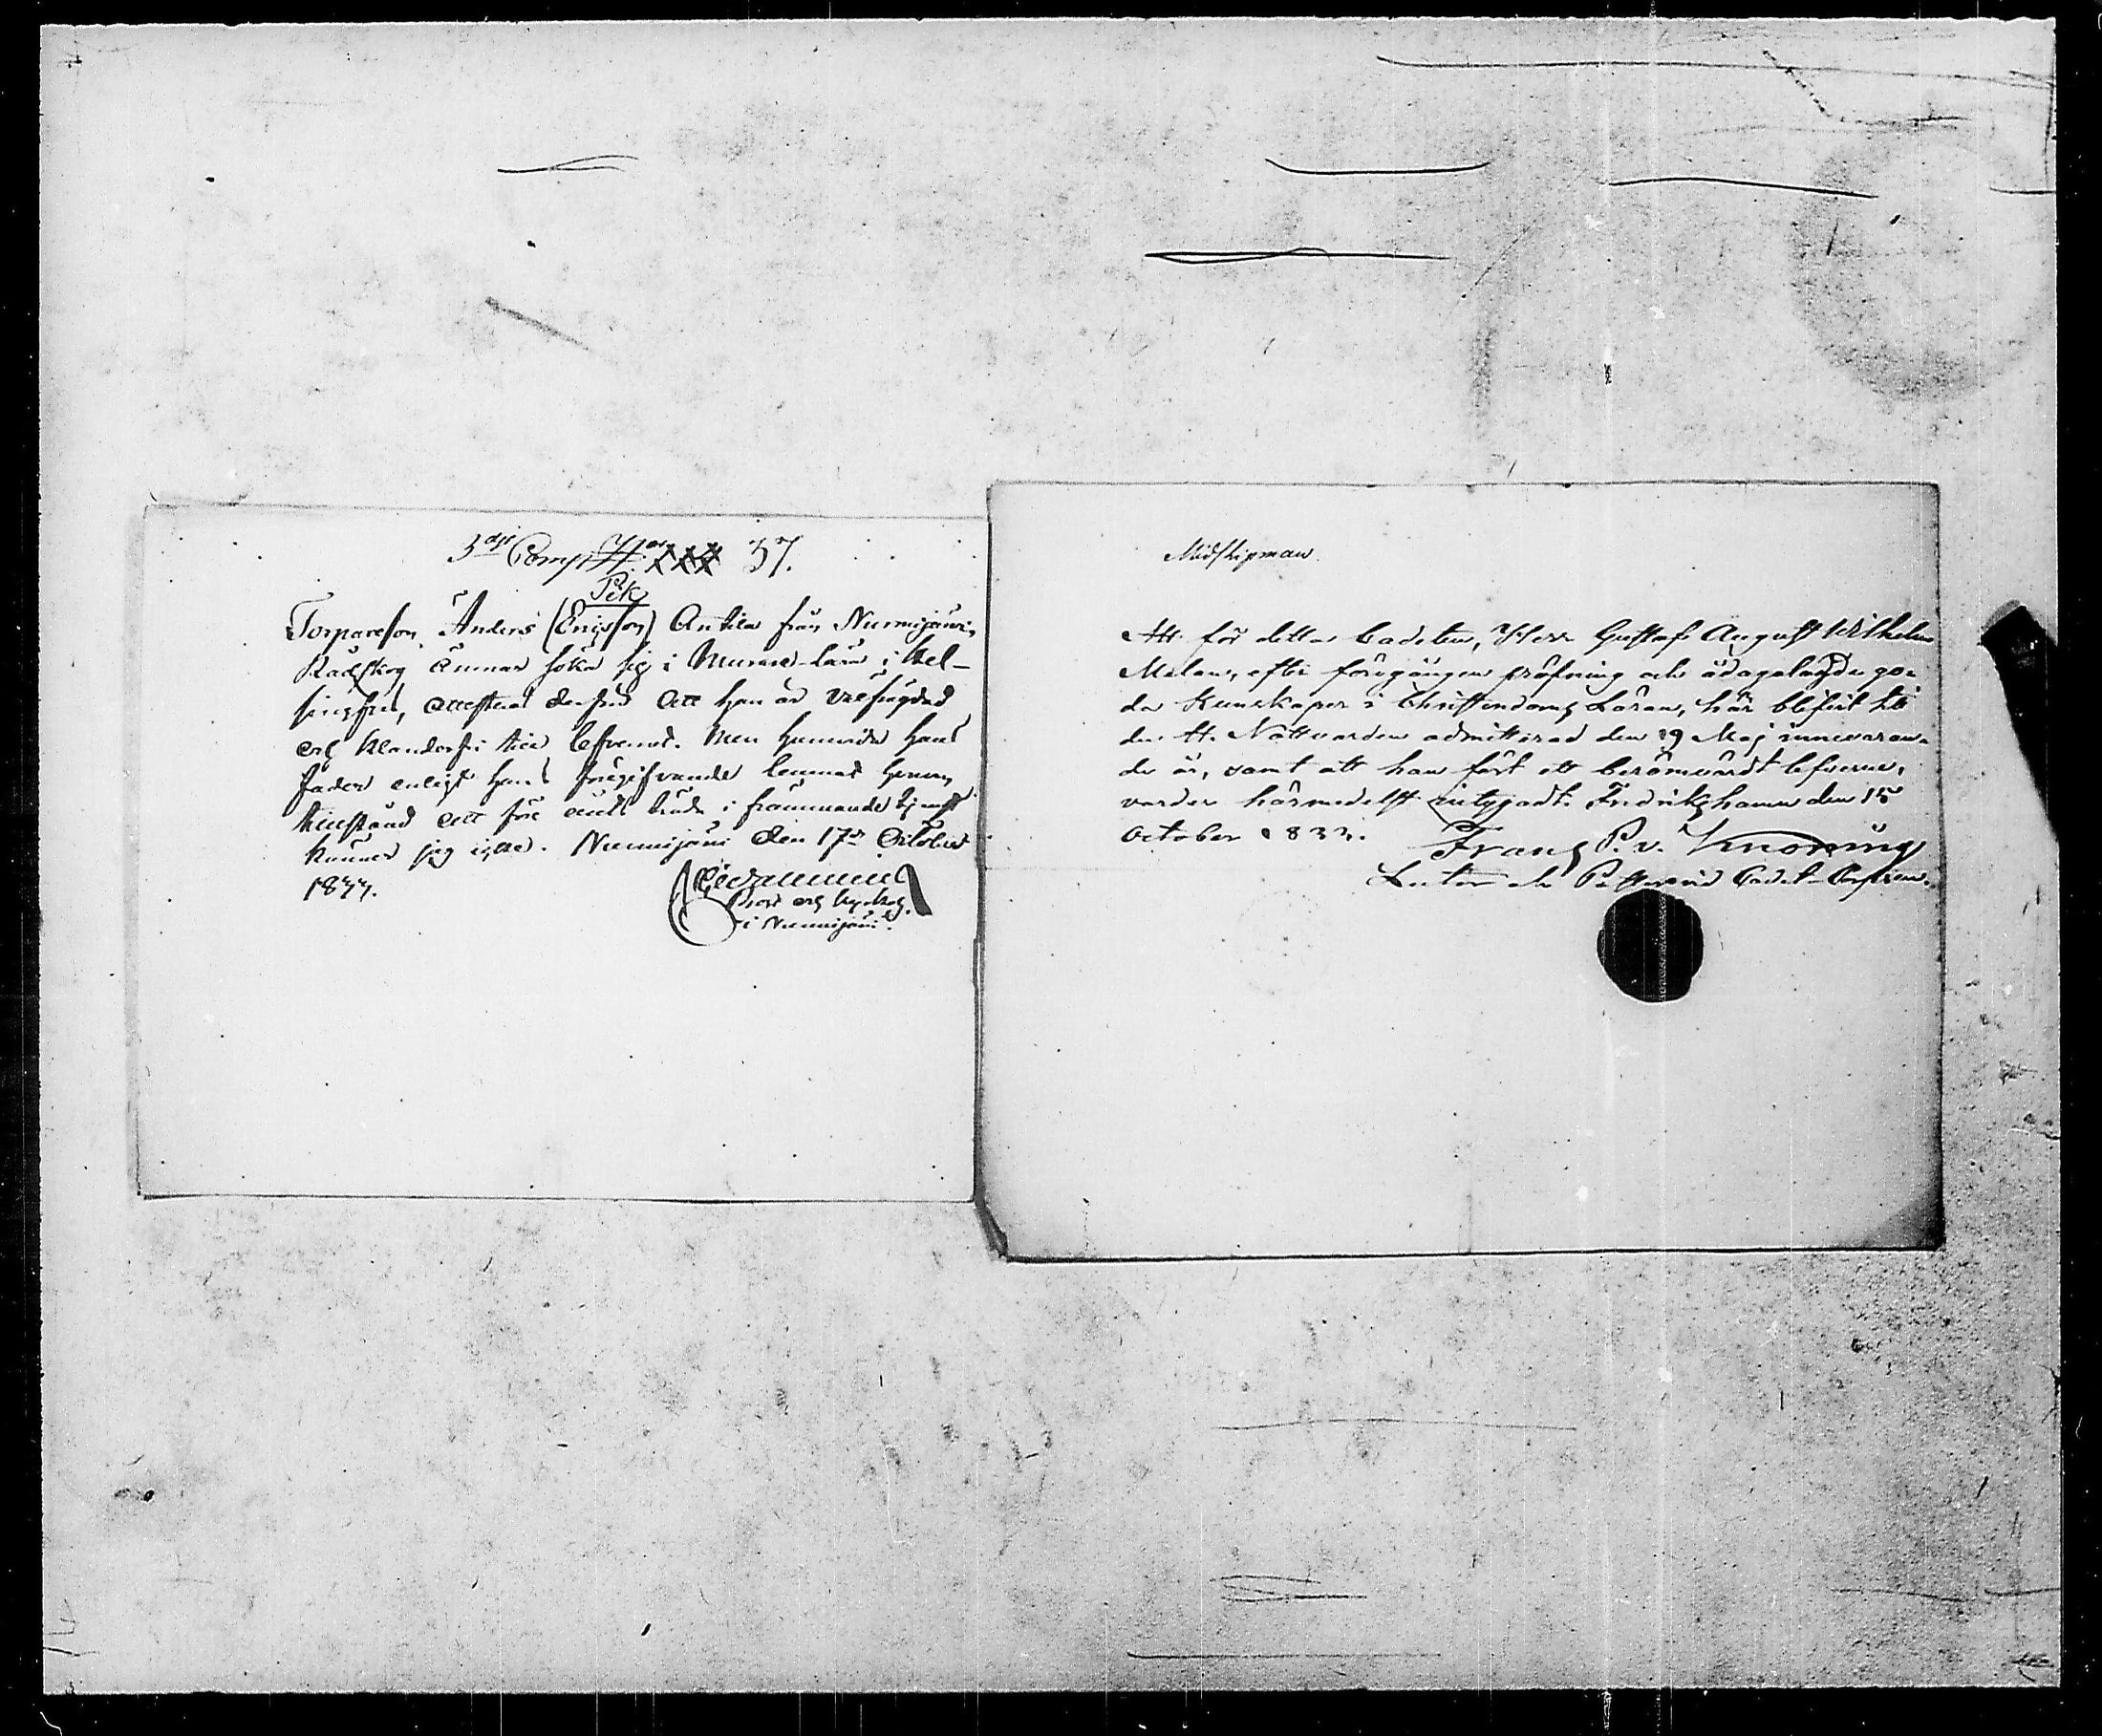 3dje Comp. No XXX 37.
Pik
Torpareson Anders (Ericsson) Antila från Nurmijärvi,
Rådskog ämnar söka sig i Murare-lära i Hel-
singfors, attesteras derföre att han är välfrägdad
och klanderfri till lefvernet. Men huruvida hans
fader enligt hans föregifvande lemnat honom
tillstånd att före årets slut i främmande tjenst
känner jag icke. Nurmijärvi den 17de October
1833.
Prost och kyrkoh.
i Nurmijärvi.
Midshipman.
Att för detta Cadetten, Herr Gustaf August Wilhelm
Melan, efter föregången pröfning och ådagalagde go-
da Kunskaper i Christendoms Läran, här blifvit till
den H. Nattvarden admitterad den 19 Maj innevaran-
de år, samt att han fört ett berömvärdt lefverne,
varder härmedelst intygadt. Fredrikshamn den 15
October 1833.
Frans P. v. Knorring
Lector och Pastor vid Cadet-Corpsen.